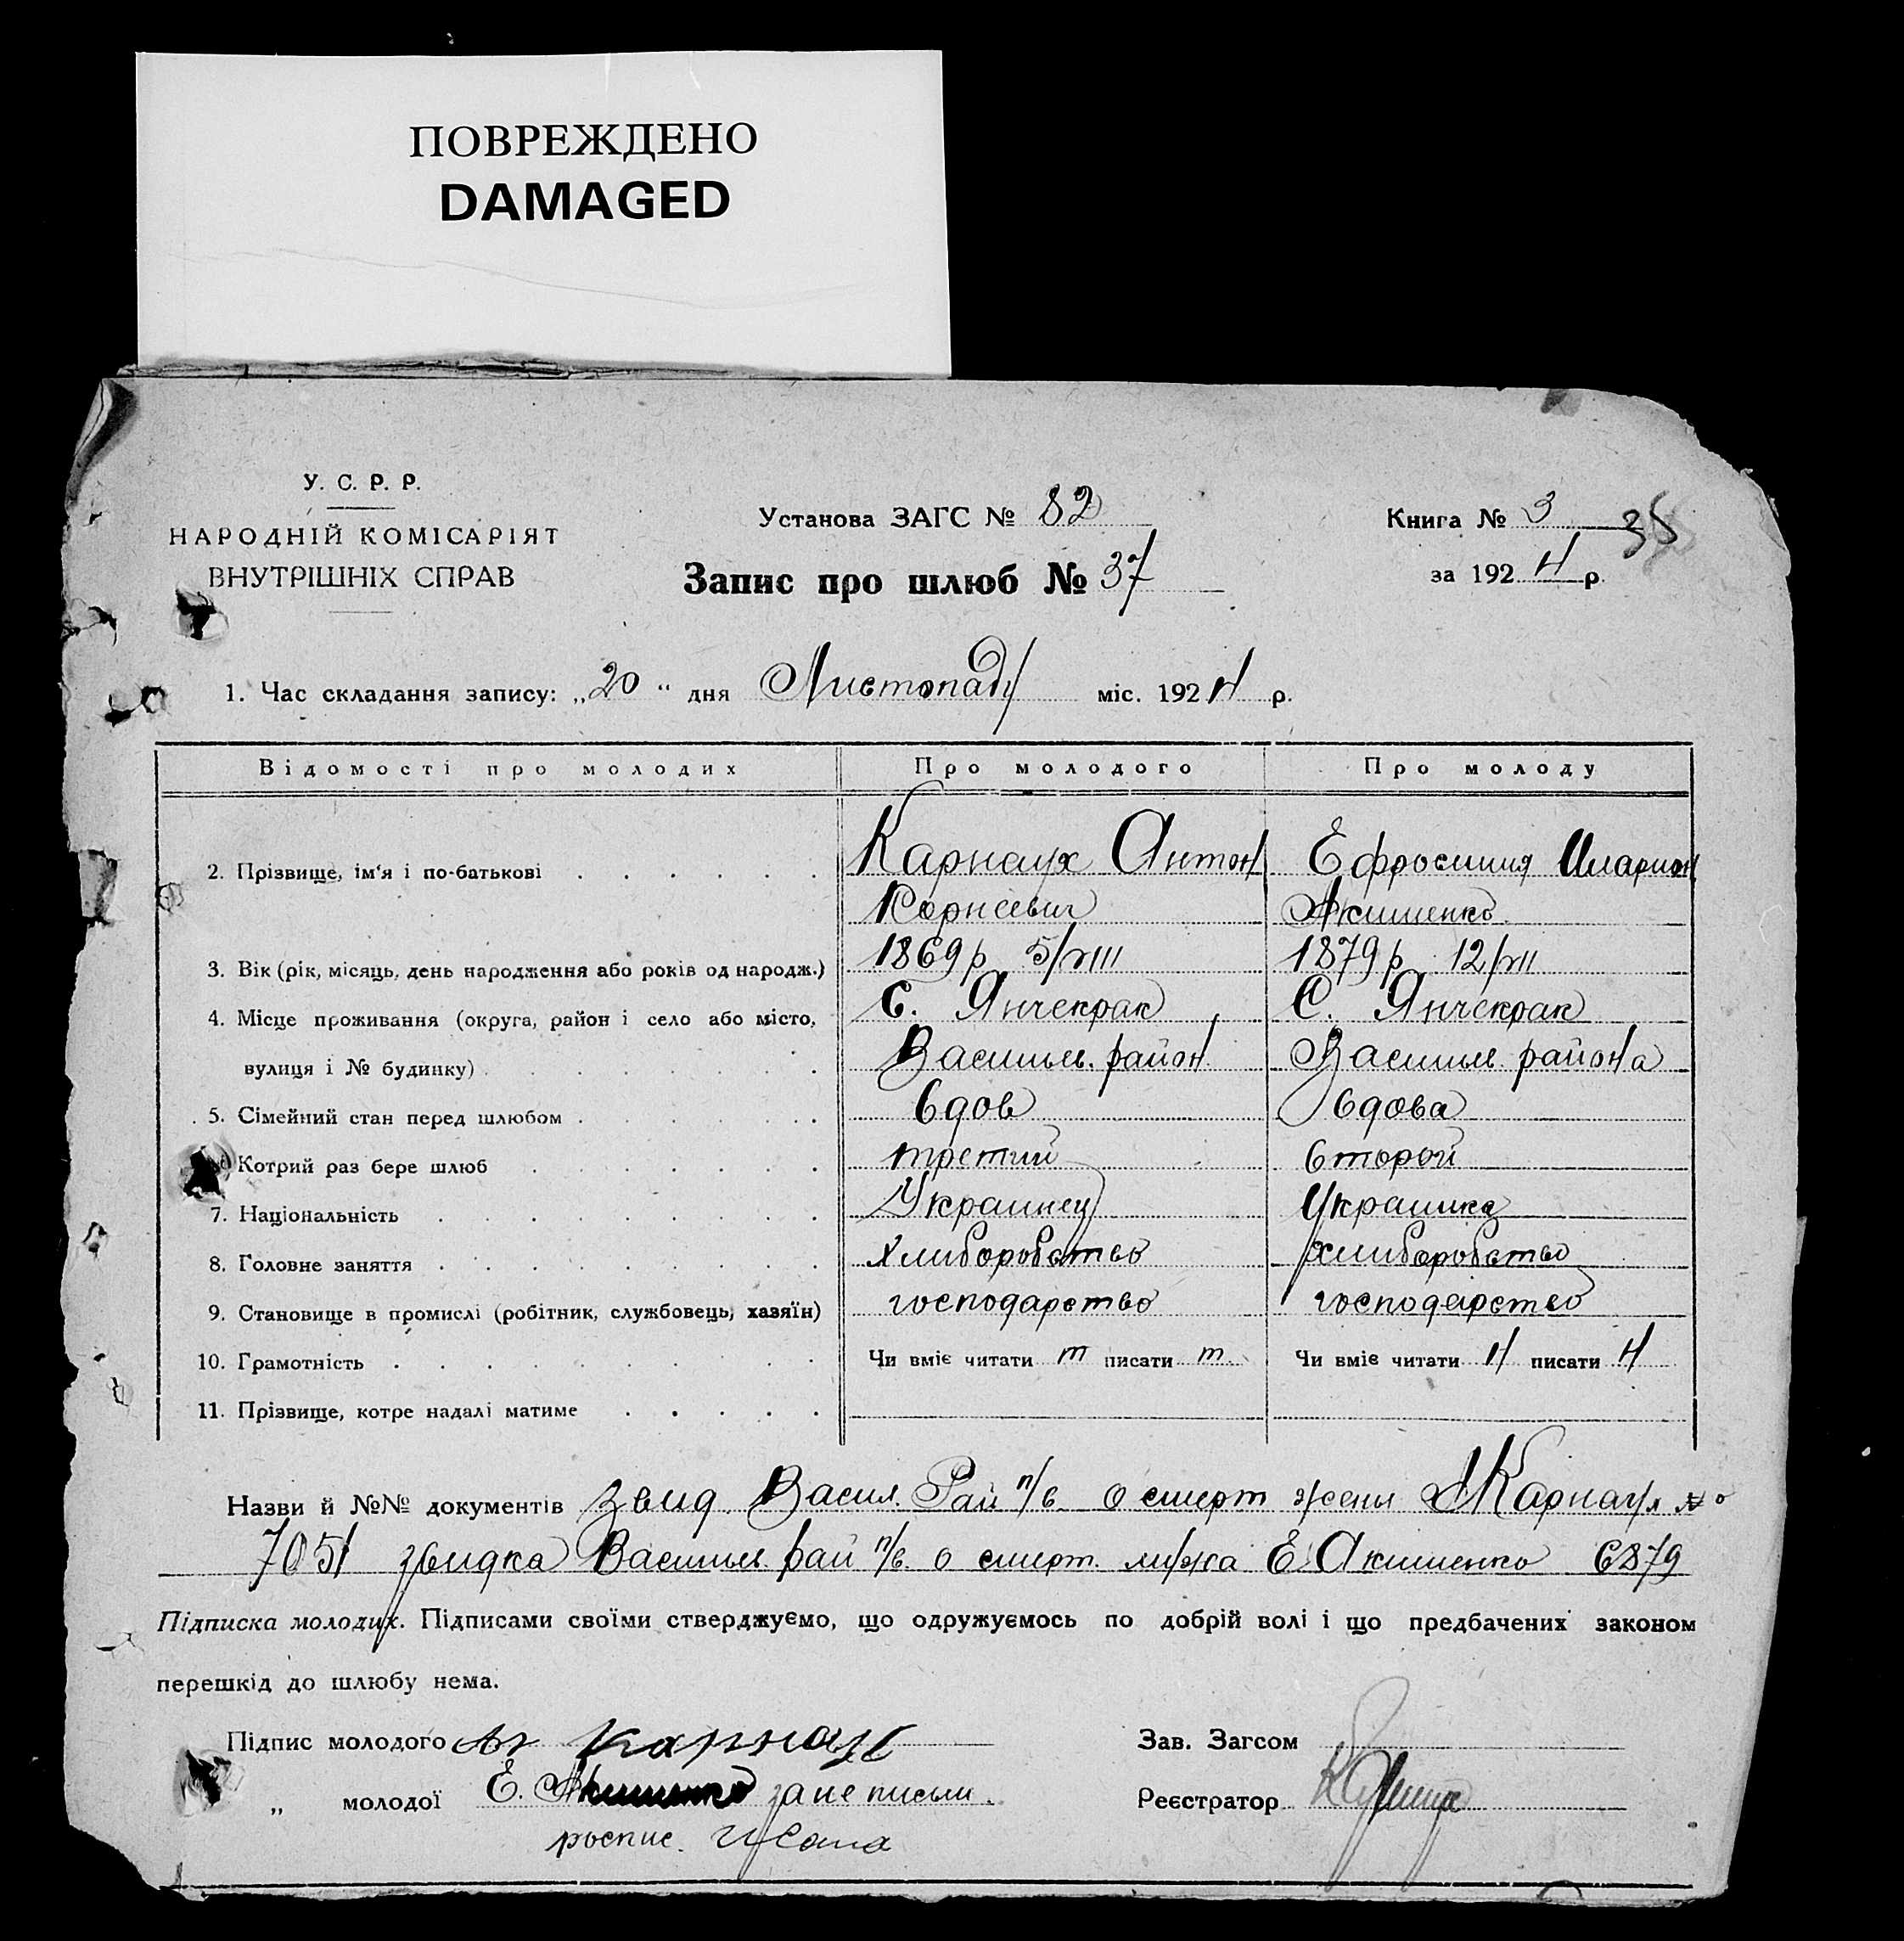 ПОВРЕЖДЕНО
DAMAGED
У. С. Р. Р.
НАРОДНІЙ КОМІСАРІЯТ
ВНУТРІШНІХ СПРАВ
Установа ЗАГС № 82
Запис про шлюб № 37
Книга № 3 35
за 1924 р.
1. Час складання запису: „20“ дня Листопаду міс. 1924 р.
Відомості про молодих Про молодого Про молоду
2. Прізвище, ім'я і по-батькові Карнаух Антон Ефросиния Иларион
Корнеевич Якименко
3. Вік (рік, місяць, день народження або років од народж.) 1869 р 5/VIII 1879 р 12/VII
4. Місце проживання (округа, район і село або місто, С. Янчекрак С. Янчекрак
вулиця і № будинку) Василів. район Василів. района
5. Сімейний стан перед шлюбом вдов вдова
Котрий раз бере шлюб третий второй
7. Національність Украинец Украинка
8. Головне заняття хлиборобство хлиборобство
9. Становище в промислі (робітник, службовець, хазяїн) господарство господарство
10. Грамотність Чи вміє читати т писати т Чи вміє читати н писати н
11. Прізвище, котре надалі матиме
Назви й №№ документів звид. Васил. Рай п/в о смерт жены Карнаух №
7051 звидка Василів. рай п/в. о смерт. мужа Е Якименко 6879
Підписка молодих. Підписами своїми стверджуємо, що одружуємось по добрій волі і що предбачених законом
перешкід до шлюбу нема.
Підпис молодого Карнаух
Зав. Загсом
„ молодої Е. Якименко за не письм.
Реєстратор
роспис.